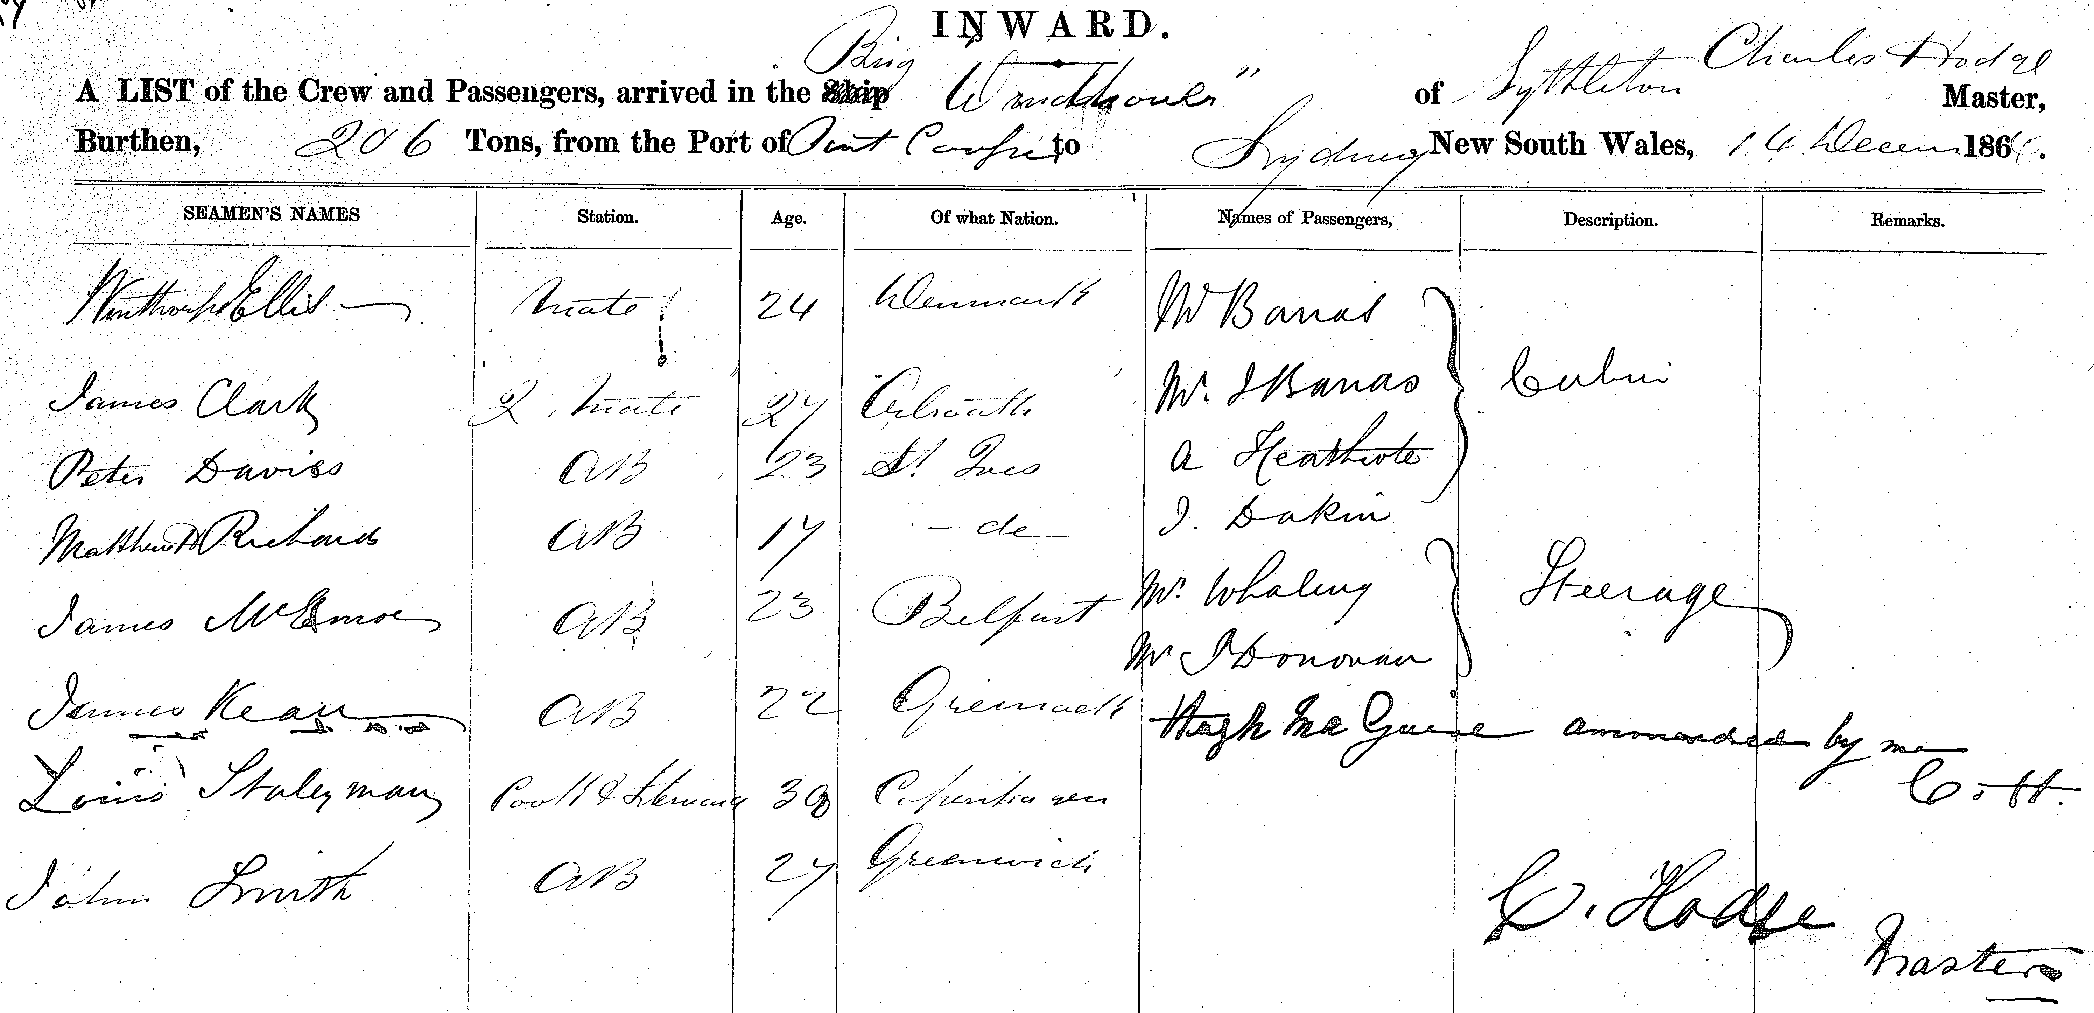 INWARD.
Brig Charles Hodge
A LIST of the Crew and Passengers, arrived in the Ship Windhover" of Lyttleton Master,
Burthen, 206 Tons, from the Port of to Sydney New South Wales, 14 Decem 186
SEAMEN'S NAMES Station. Age. Of what Nation. Names of Passengers, Description. Remarks.
Winthorp Ellis Mate 24 Denmark Banas
James Clark 2 Mate 27 Mr. J Banas Cabin
Peter Daviss AB 23 St Ives A Heathcote
Matthew Richards AB 17 - do - J. Dakin
James AB 23 Belfast Mr. Whaling Steerage
Mr J Donovan
James Kean AB 22 Greenock Hugh McGuire by me
Louis Staleyman Cook & Steward 38 Copenhagen C. H.
John Smith AB 27 Greenwich
C. Hodge
Master